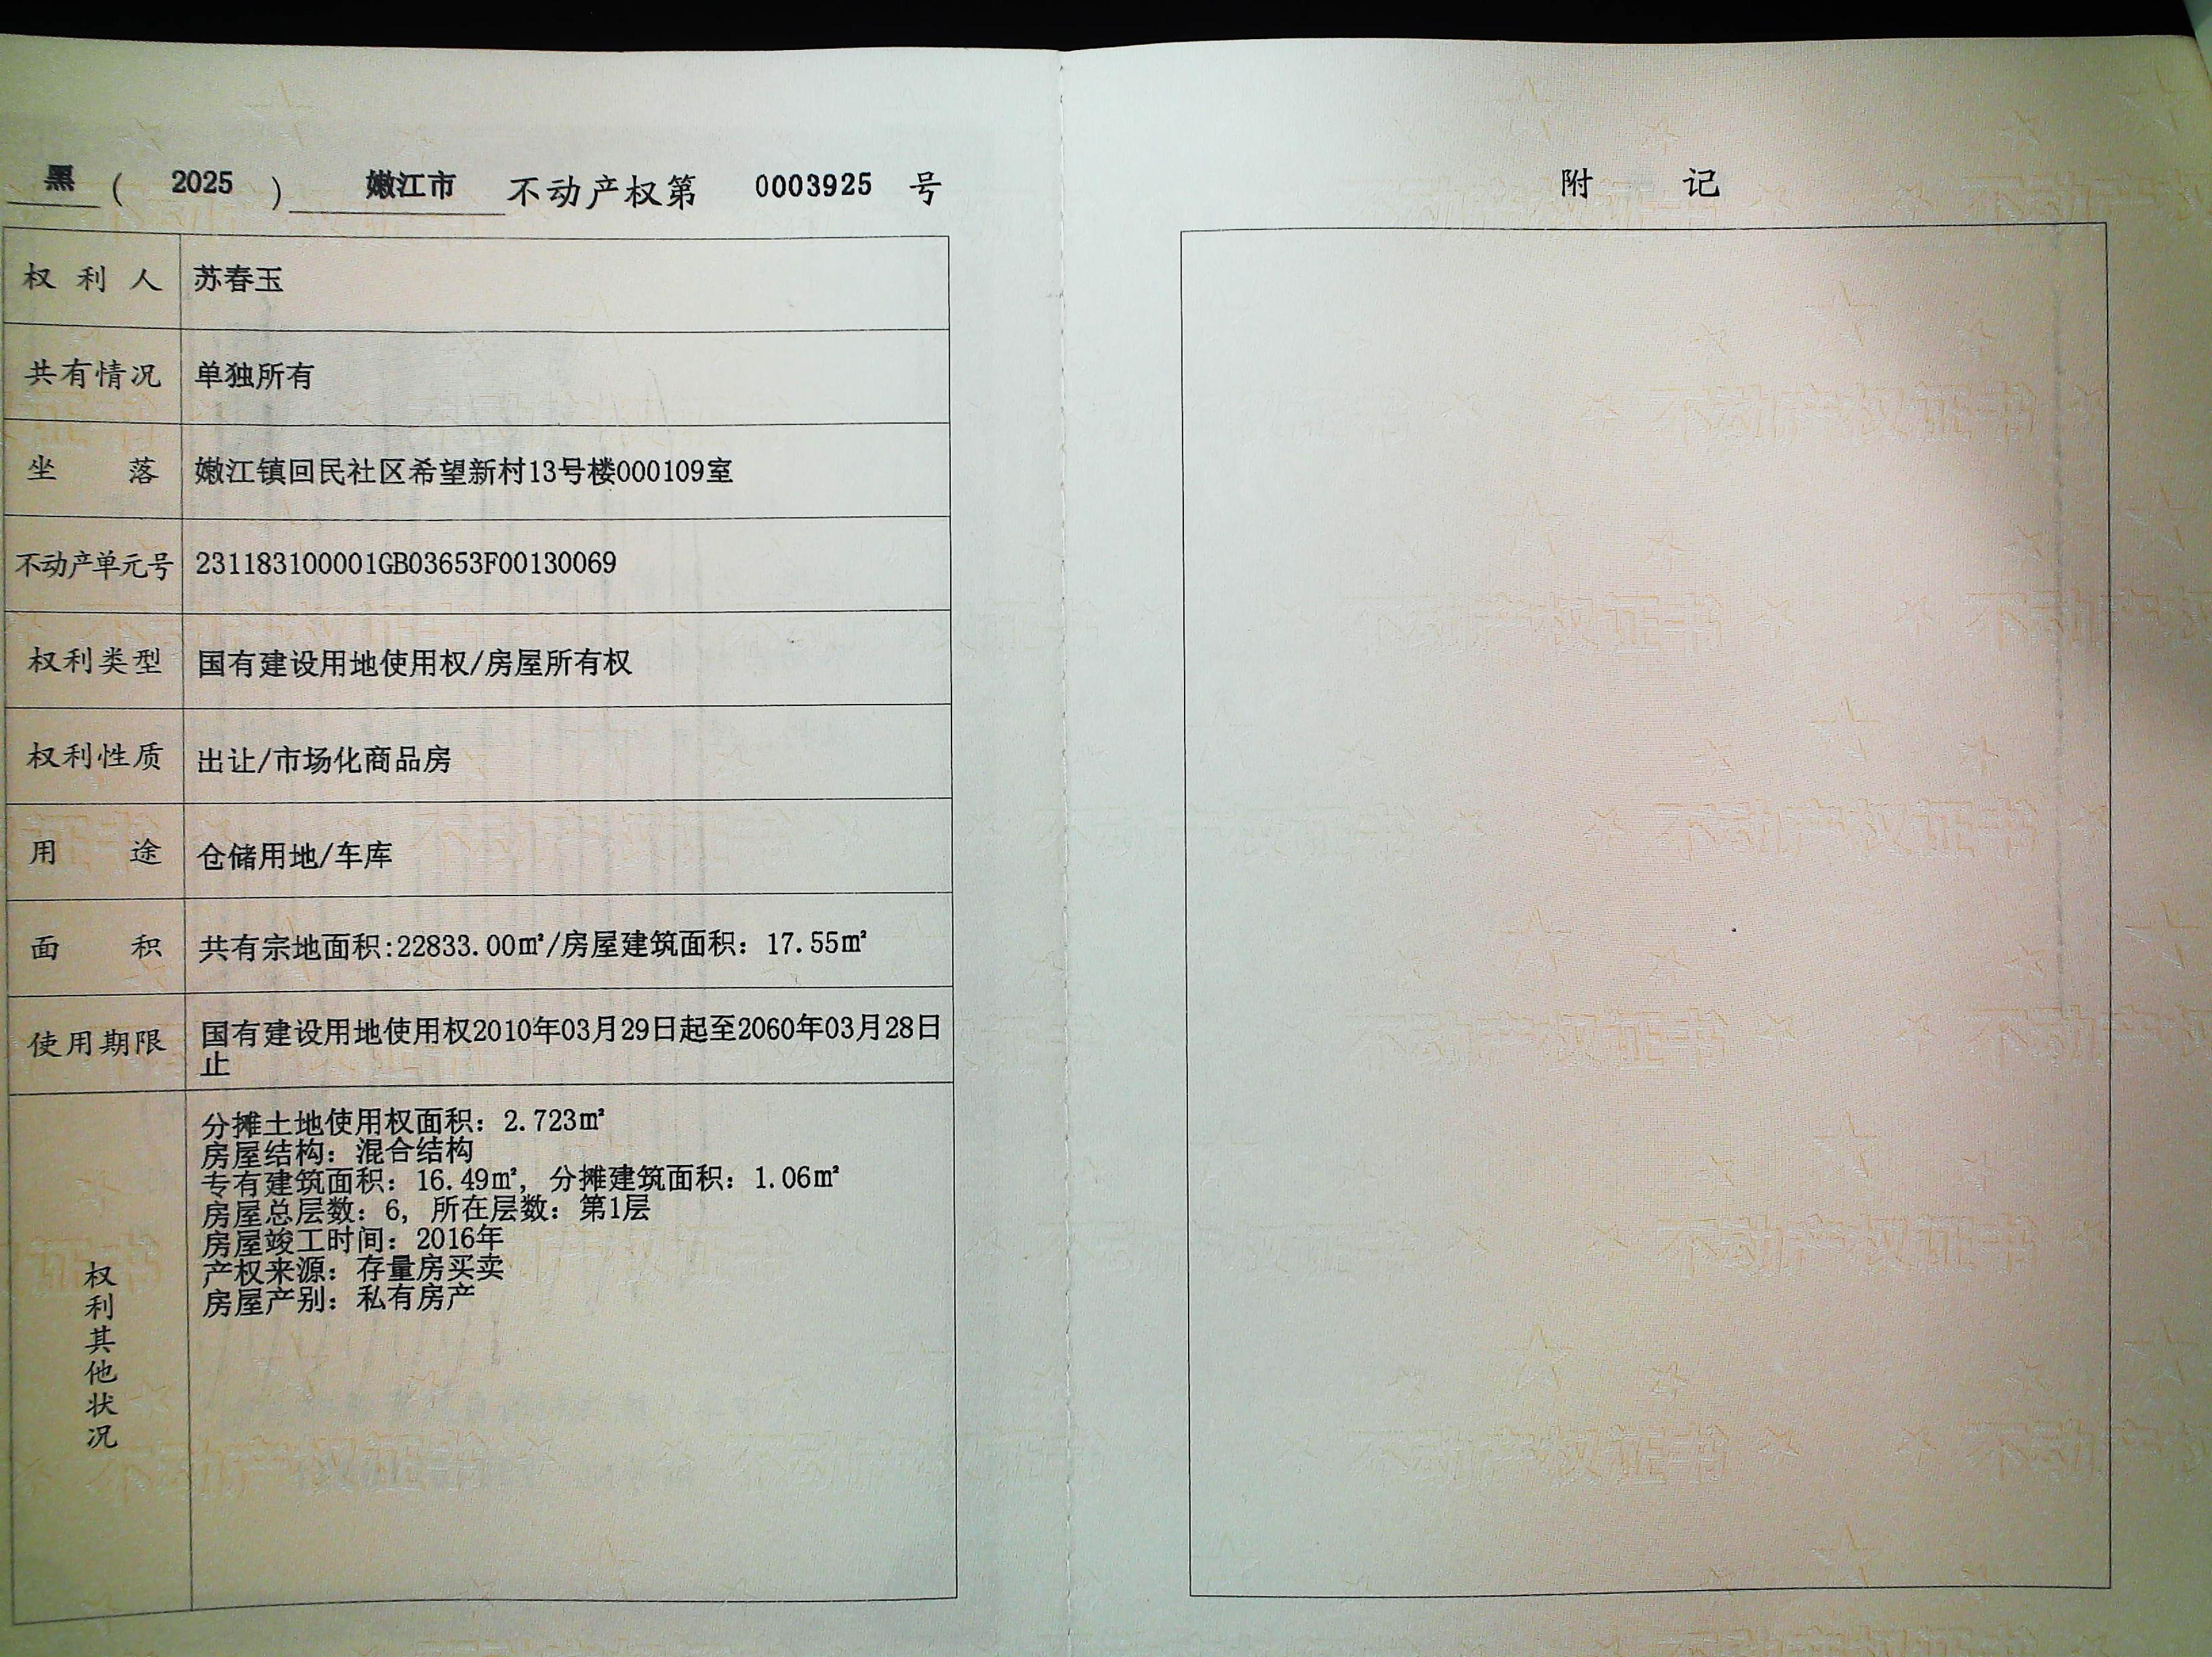 黑 ( 2025 ) 嫩江市 不动产权第 0003925 号
权利人 苏春玉
共有情况 单独所有
坐落 嫩江镇回民社区希望新村13号楼000109室
不动产单元号 231183100001GB03653F00130069
权利类型 国有建设用地使用权/房屋所有权
权利性质 出让/市场化商品房
用途 仓储用地/车库
面积 共有宗地面积:22833.00㎡/房屋建筑面积：17.55㎡
使用期限 国有建设用地使用权2010年03月29日起至2060年03月28日
止
权利其他状况
分摊土地使用权面积：2.723㎡
房屋结构：混合结构
专有建筑面积：16.49㎡，分摊建筑面积：1.06㎡
房屋总层数：6，所在层数：第1层
房屋竣工时间：2016年
产权来源：存量房买卖
房屋产别：私有房产
附记
不动产权证书